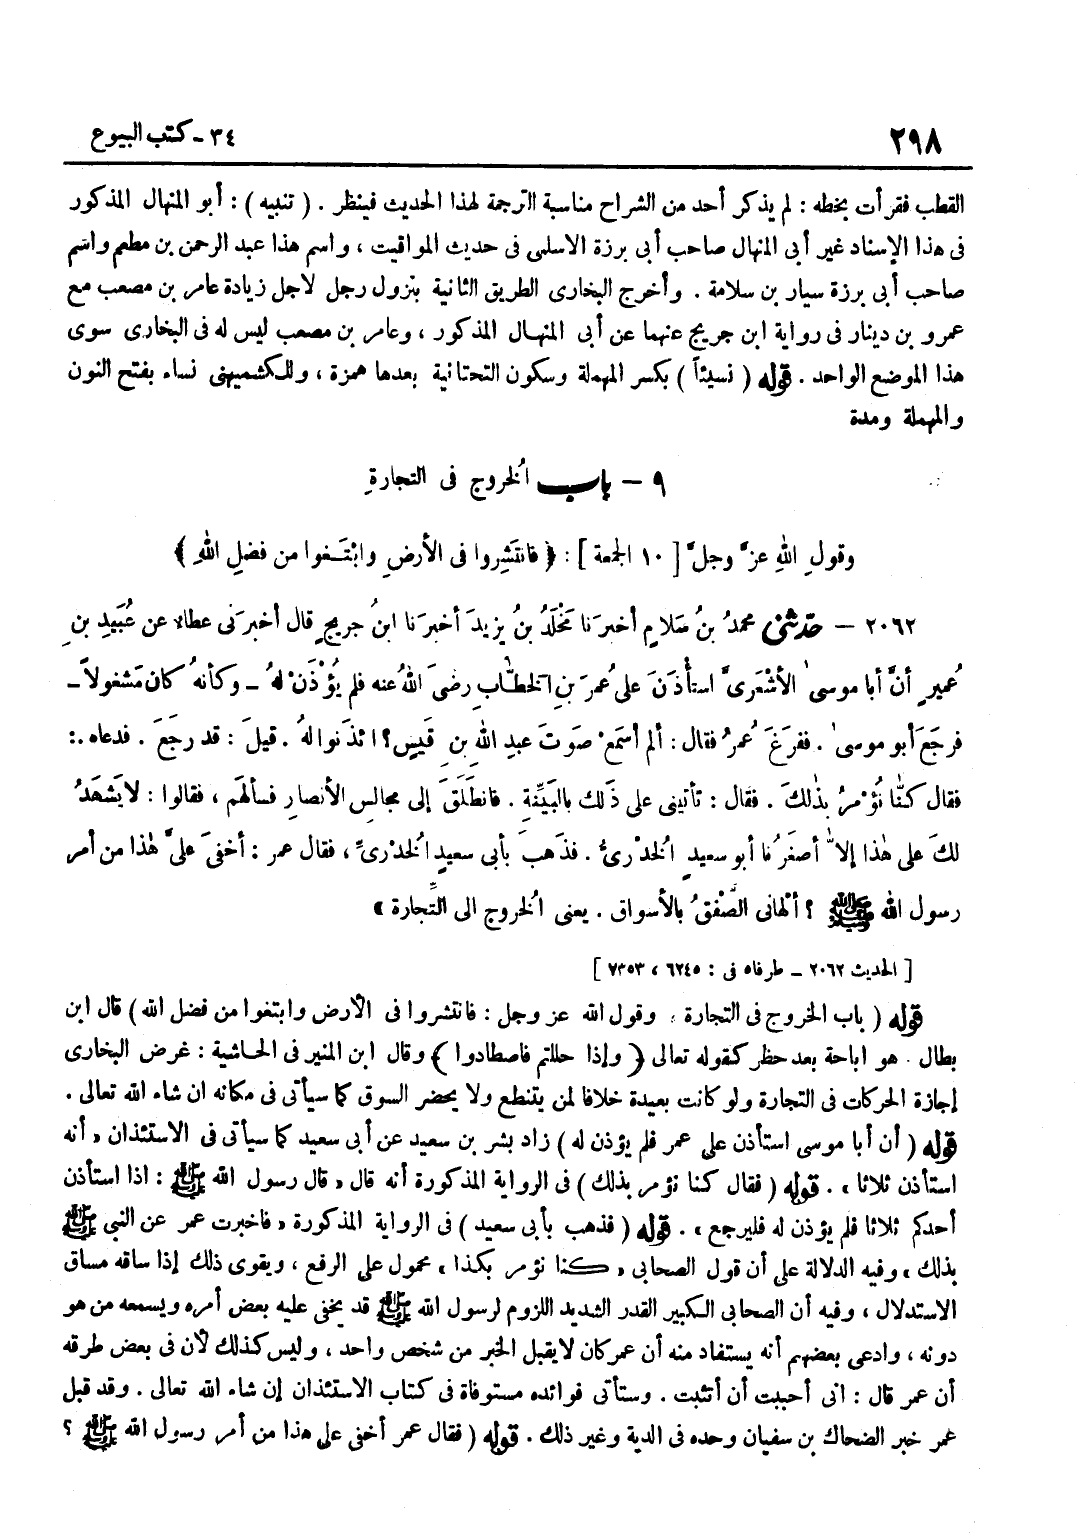 ٢٩٨
٣٤ - كتب البيوع
القطب فقرأت بخطه : لم يذكر أحد من الشراح مناسبة الترجمة لهذا الحديث فينظر . ( تنبيه ) : أبو المنهال المذكور
فى هذا الإسناد غير أبى المنهال صاحب أبى برزة الاسلمى فى حديث المواقيت ، واسم هذا عبد الرحمن بن مطعم واسم
صاحب أبى برزة سيار بن سلامة . وأخرج البخارى الطريق الثانية بنزول رجل لاجل زيادة عامر بن مصعب مع
عمرو بن دينار فى رواية ابن جريج عنهما عن أبى المنهال المذكور ، وعامر بن مصعب ليس له فى البخارى سوى
هذا الموضع الواحد . قوله ( نسيئاً ) بكسر المهملة وسكون التحتانية بعدها همزة ، وللكشميهنى نساء بفتح النون
والمهملة ومدة
٩ - باب الخُروج فى التجارةِ
وقولِ اللهِ عزَّ وجلَّ [ ١٠ الجمعة ] : ﴿ فانتَشِروا فى الأرضِ وابْتَـغوا من فضلِ اللهِ ﴾
٢٠٦٢ - حدثنى محمدُ بنُ سَلامٍ أخبرَنا مَخْلَدُ بنُ يزيدَ أخبرَنا ابنُ جريجٍ قال أخبرَنى عطاء عن عُبَيدِ بنِ
عُميرٍ أنَّ أبا موسىٰ الأشْعَرىَّ استأْذَنَ على عُمرَ بنِ الخطّابِ رضىَ اللهُ عنه فلم يُؤْذَنْ لهُ ـ وكأنهُ كان مَشغولاً ـ
فرجَعَ أبو موسىٰ . ففرَغَ عُمرُ فقال : ألم أسمَعْ صَوتَ عبدِ اللهِ بنِ قَيسٍ ؟ ائذَنوا لهُ . قيلَ : قد رجَعَ . فدعاه .:
فقال كنّا نُؤمرُ بذٰلكَ . فقال : تأتينى على ذٰلك بالبَيِّنةِ . فانطَلَقَ إلى مجالسِ الأنصارِ فسألهَم ، فقالوا : لا يَشهَدُ
لكَ على هٰذا إلاّ أصغَرُنا أبو سعيدٍ الخُدْرىُّ . فذَهبَ بأبى سعيدٍ الخُدْرىِّ ، فقال عمر : أخفىَ علىَّ هٰذا من أمر
رسول الله ﷺ ؟ ألهانى الصَّفْقُ بالأسواق . يعنى الخُروج الى التِّجارة »
[ الحديث ٢٠٦٢ - طرفاه فى : ٦٢٤٥ ، ٧٣٥٣ ]
قوله ( باب الخروج فى التجارة ، وقول الله عز وجل : فانتشروا فى الأرض وابتغوا من فضل الله ) قال ابن
بطال . هو اباحة بعد حظر كقوله تعالى ﴿ وإذا حللتم فاصطادوا ﴾ وقال ابن المنير فى الحاشية : غرض البخارى
إجازة الحركات فى التجارة ولو كانت بعيدة خلافا لمن يتنطع ولا يحضر السوق كما سيأتى فى مكانه ان شاء الله تعالى .
قوله ( أن أبا موسى استأذن على عمر فلم يؤذن له ) زاد بشر بن سعيد عن أبى سعيد كما سيأتى فى الاستئذان « أنه
استأذن ثلاثا » . قوله ( فقال كنا نؤمر بذلك ) فى الرواية المذكورة أنه قال « قال رسول الله ﷺ : اذا استأذن
أحدكم ثلاثا فلم يؤذن له فليرجع » . قوله ( فذهب بأبى سعيد ) فى الرواية المذكورة « فاخبرت عمر عن النبى ﷺ
بذلك » وفيه الدلالة على أن قول الصحابى « كنا نؤمر بكذا » محمول على الرفع ، ويقوى ذلك إذا ساقه مساق
الاستدلال ، وفيه أن الصحابى الكبير القدر الشديد اللزوم لرسول الله ﷺ قد يخفى عليه بعض أمره ويسمعه من هو
دونه ، وادعى بعضهم أنه يستفاد منه أن عمر كان لايقبل الخبر من شخص واحد ، وليس كذلك لأن فى بعض طرقه
أن عمر قال : انى أحببت أن أتثبت . وستأتى فوائده مستوفاة فى كتاب الاستئذان إن شاء الله تعالى . وقد قبل
عمر خبر الضحاك بن سفيان وحده فى الدية وغير ذلك . قوله ( فقال عمر أخفى على هذا من أمر رسول الله ﷺ ؟